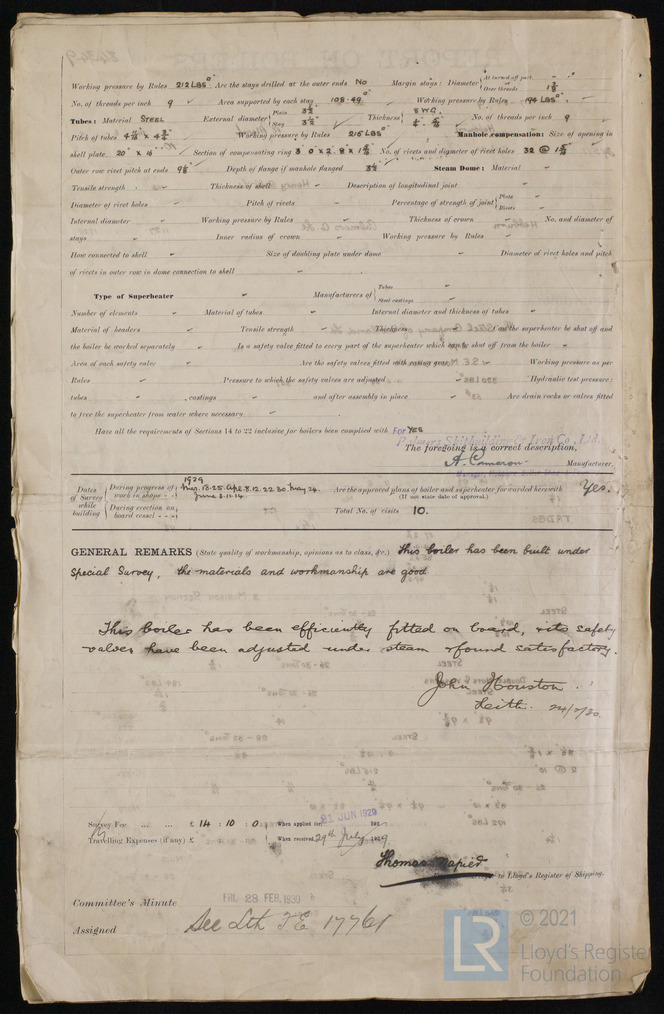 Working pressure by Rules 212 LBS Are the stays drilled at the outer ends No Margin stays: Diameter { At turned off part, or Over threads
No. of threads per inch 9 Area supported by each stay 108·49 Working pressure by Rules 194 LBS
Tubes: Material STEEL External diameter { Plain 3½ Stay 3½ Thickness { 8 W.G. No. of threads per inch 9
Pitch of tubes Working pressure by Rules 215 LBS Manhole compensation: Size of opening in
shell plate 20" x 16 Section of compensating ring No. of rivets and diameter of rivet holes 32 @
Outer row rivet pitch at ends Depth of flange if manhole flanged 3½ Steam Dome: Material
Tensile strength Thickness of shell Description of longitudinal joint
Diameter of rivet holes Pitch of rivets Percentage of strength of joint { Plate Rivets
Internal diameter Working pressure by Rules Thickness of crown No. and diameter of
stays Inner radius of crown Working pressure by Rules
How connected to shell Size of doubling plate under dome Diameter of rivet holes and pitch
of rivets in outer row in dome connection to shell
Type of Superheater Manufacturers of { Tubes Steel castings
Number of elements Material of tubes Internal diameter and thickness of tubes
Material of headers Tensile strength Thickness Can the superheater be shut off and
the boiler be worked separately Is a safety valve fitted to every part of the superheater which can be shut off from the boiler
Area of each safety valve Are the safety valves fitted with easing gear Working pressure as per
Rules Pressure to which the safety valves are adjusted Hydraulic test pressure:
tubes , castings and after assembly in place Are drain cocks or valves fitted
to free the superheater from water where necessary
Have all the requirements of Sections 14 to 22 inclusive for boilers been complied with YES
For Palmers Shipbuilding & Iron Co., Ltd.
The foregoing is a correct description,
A. Cameron Manufacturer.
Dates of Survey while building { During progress of work in shops - - 1929 Mar. 18. 25. Apl. 8. 12. 22. 30. May 24. June 3. 11. 14 Are the approved plans of boiler and superheater forwarded herewith Yes.
(If not state date of approval.)
During erection on board vessel - - - Total No. of visits 10.
GENERAL REMARKS (State quality of workmanship, opinions as to class, &c.) This boiler has been built under
Special Survey, the materials and workmanship are good
This boiler has been efficiently fitted on board, & its safety
valves have been adjusted under steam & found satisfactory.
John Houston.
Leith. 24/2/30.
Survey Fee ... ... £ 14 : 10 : 0 When applied for 21 JUN 1929
Travelling Expenses (if any) £ : : When received 29th July 1929
Thomas Napier
to Lloyd's Register of Shipping.
Committee's Minute FRI. 28 FEB. 1930
Assigned See Lth F.E. 17761
© 2021
LR Lloyd's Register
Foundation